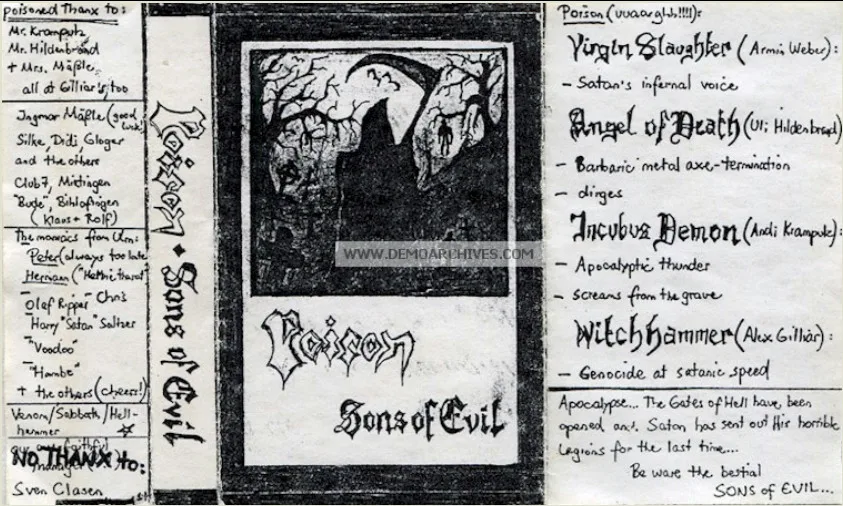 poisoned Thanx to:
Mr. Kramputz,
Mr. Hildenbrand
+ Mrs. Mäßle,
all at Gilliar's, too
Ingmar Mäßle (good
luck!)
Silke, Didi, Gloger
and the others
Club 7, Mietingen
"Bude", Bihlafingen
(Klaus + Rolf)
The maniacs from Ulm:
Peter (always too late)
Hermann
Olaf "Ripper" Chris
Harry "Satan" Saltzer
"Voodoo"
"Hambe"
+ the others (cheers!)
Venom/Sabbath/Hell-
hammer
our faithful
NO THANX to:
Sven Clasen
Poison • Sons of Evil
WWW.DEMOARCHIVES.COM
Poison
Sons of Evil
Poison (uuaarghh!!!!):
Virgin Slaughter (Armin Weber):
- Satan's infernal voice
Angel of Death (Uli Hildenbrand)
- Barbaric metal axe-termination
- dirges
Incubus Demon (Andi Kramputz):
- Apocalyptic thunder
- screams from the grave
Witchhammer (Alex Gilliar):
- Genocide at satanic speed
Apocalypse... The Gates of Hell have been
opened and Satan has sent out His horrible
legions for the last time...
Be ware the bestial
SONS of EVIL...